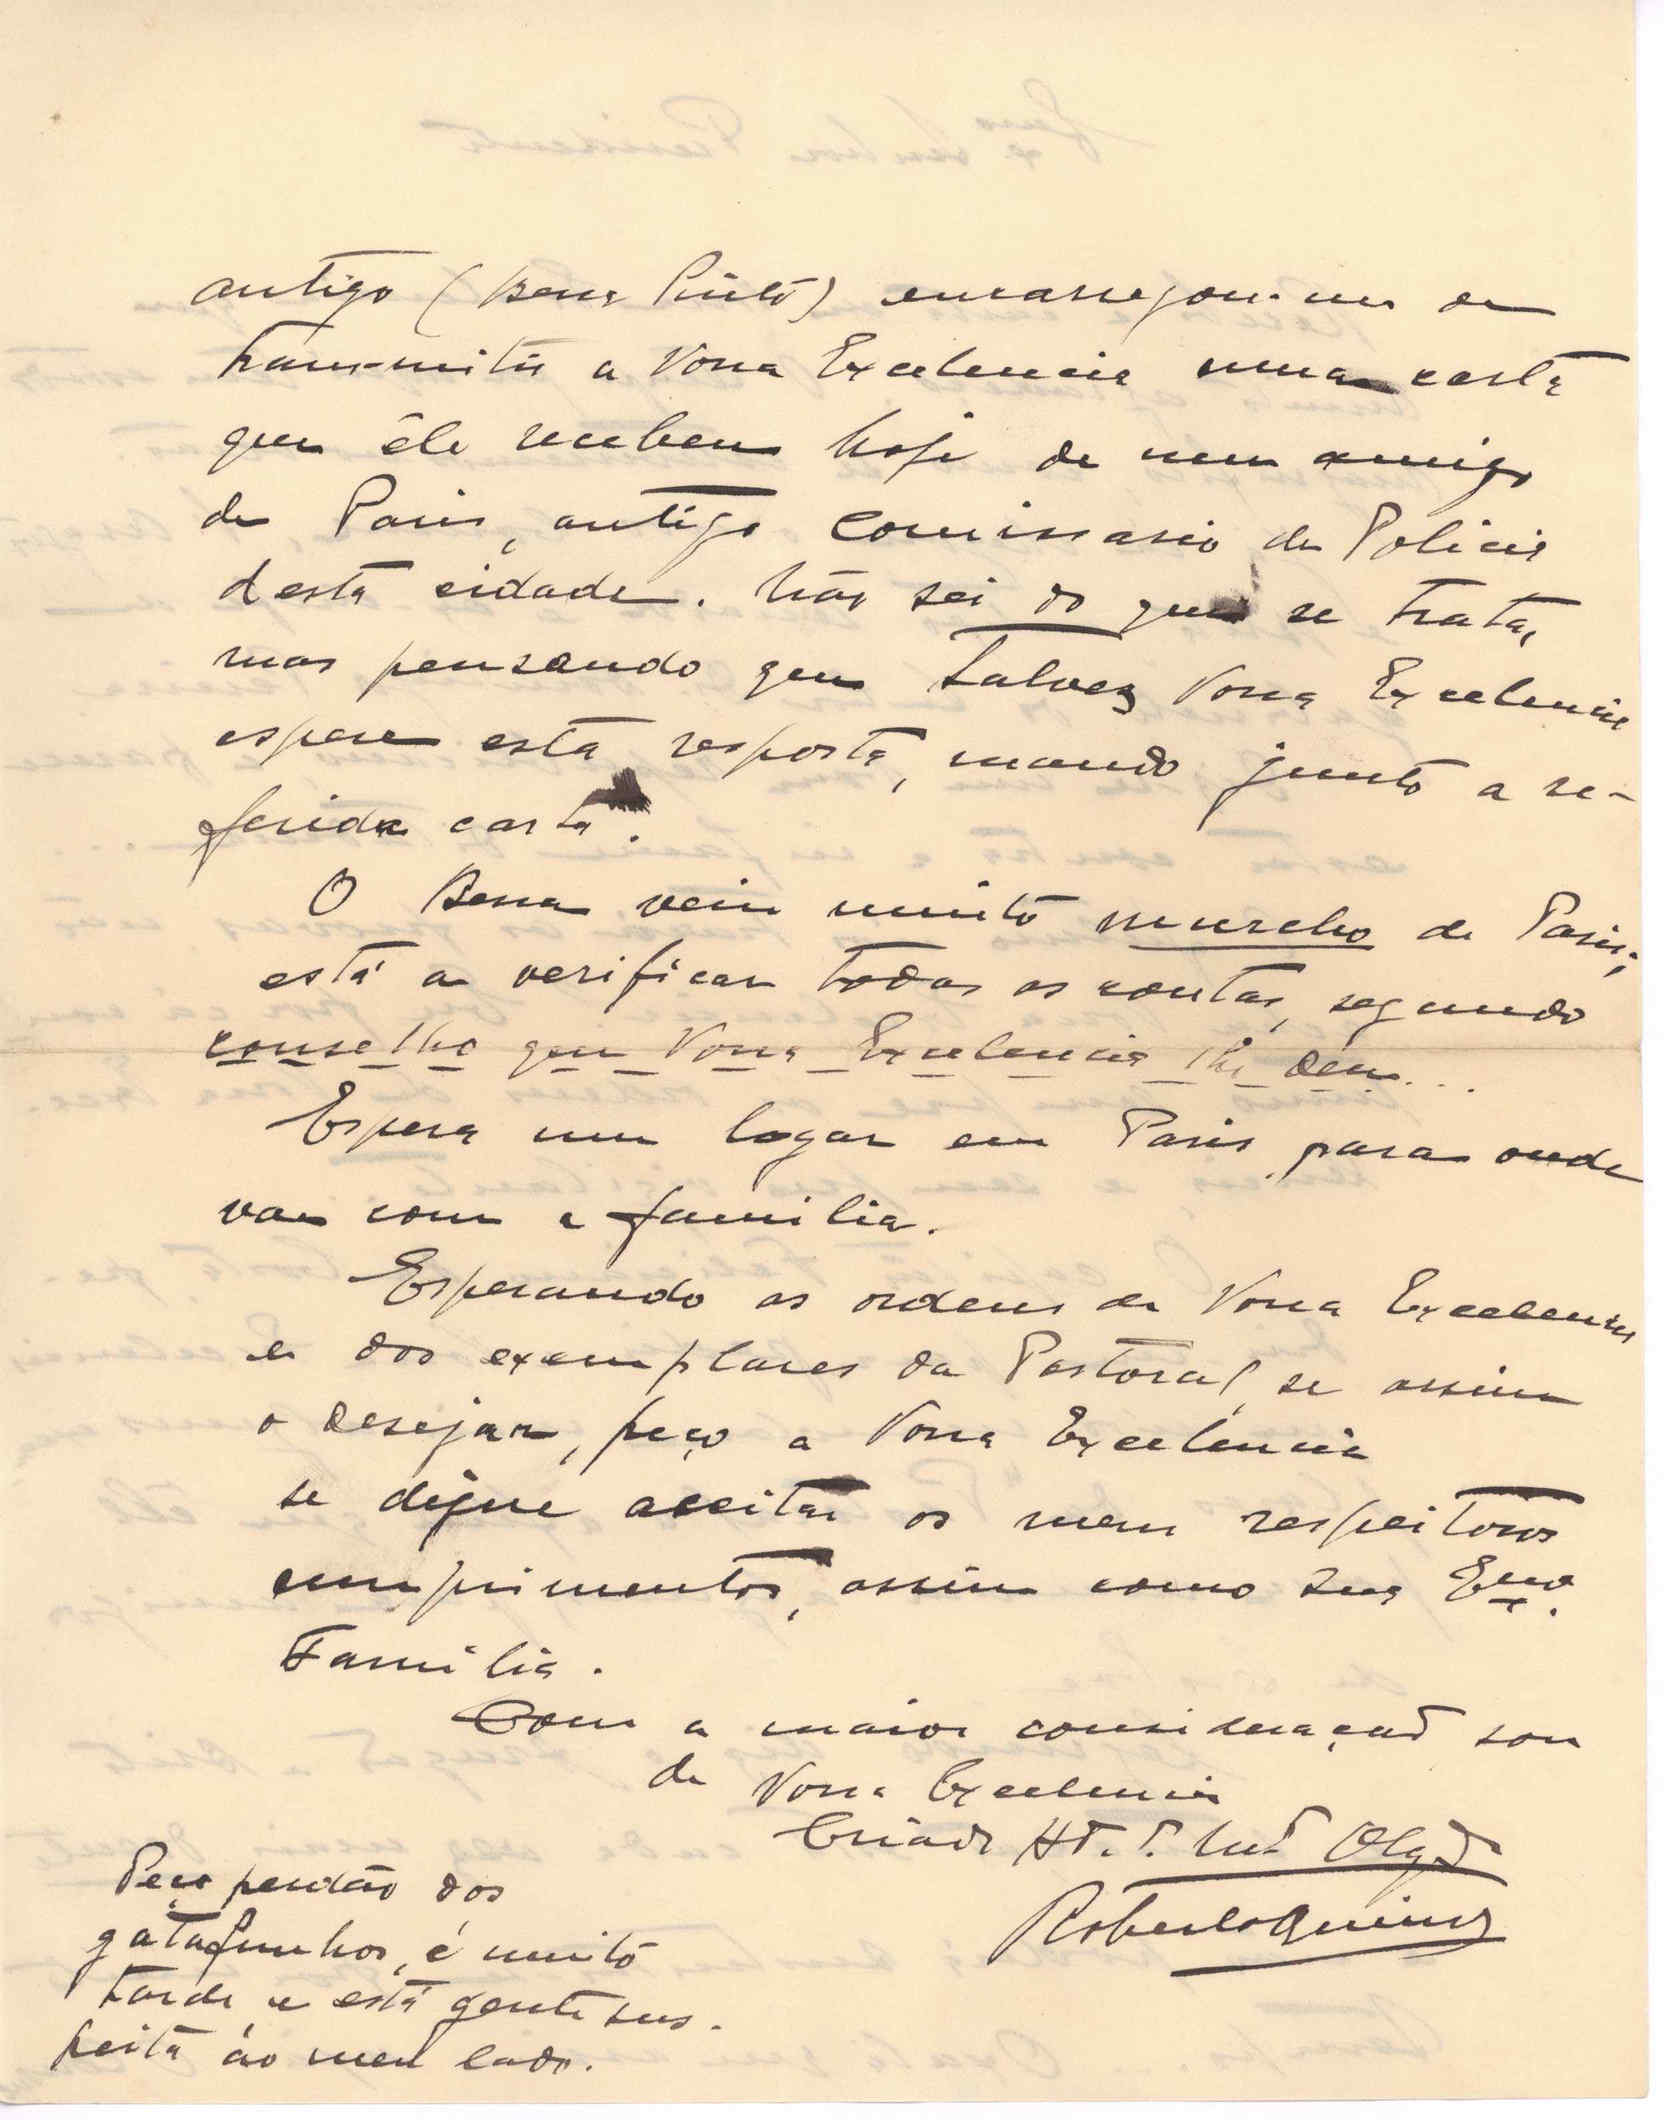 antigo (Bessa Pinto) encarregou-me de
transmitir a Vossa Excelencia uma carta
que êle recebeu hoje de um amigo
de Paris, antigo Comissario de Policia
desta cidade. Não sei do que se trata,
mas pensando que talvez Vossa Excelencia
espere esta resposta, mando junto a re-
ferida carta.
O Bessa veiu muito murcho de Paris;
está a verificar todas as contas, segundo
conselho que Vossa Excelencia lhe deu...
Espera um logar em Paris para onde
vae com a familia.
Esperando as ordens de Vossa Excelencia
e dos exemplares da Pastoral, se assim
o desejar, peço a Vossa Excelencia
se digne aceitar os meus respeitosos
cumprimentos, assim como sua Exma.
Familia.
Com a maior consideração sou
de Vossa Excelencia
Criado At. V. Mto Obgdo
Roberto
Peço perdão dos
gatafunhos, é muito
tarde e está gente sus-
peita ao meu lado.